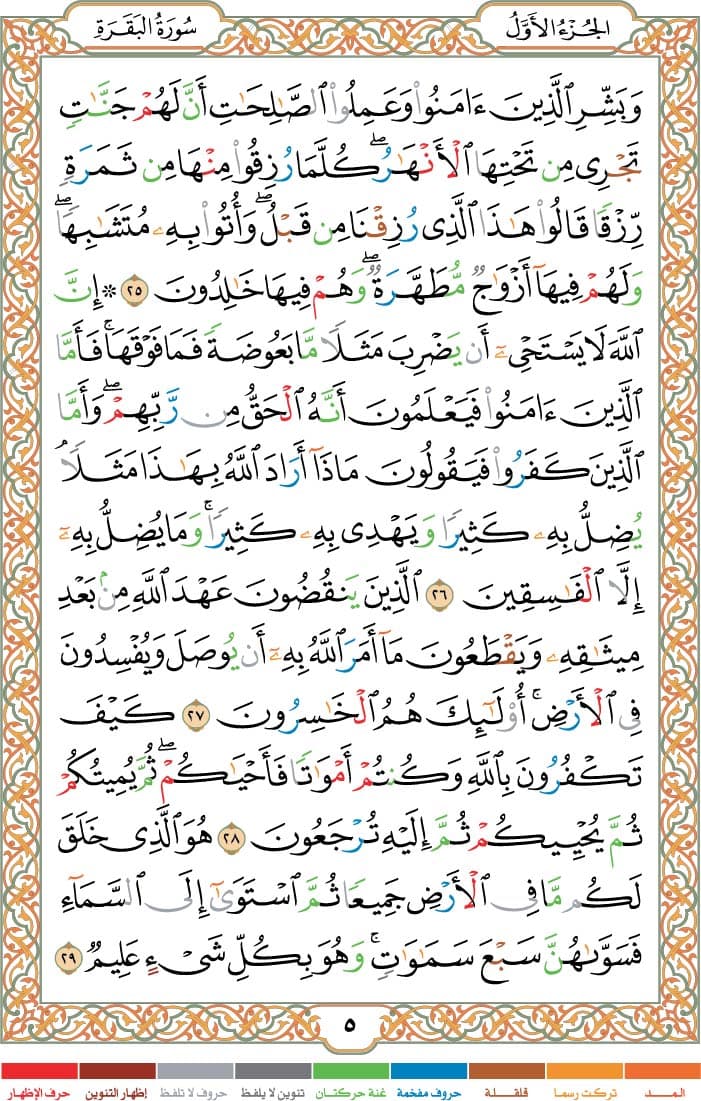 الجزء الأول
سورة البقرة
وَبَشِّرِ ٱلَّذِينَ ءَامَنُوا۟ وَعَمِلُوا۟ ٱلصَّـٰلِحَـٰتِ أَنَّ لَهُمْ جَنَّـٰتٍ
تَجْرِى مِن تَحْتِهَا ٱلْأَنْهَـٰرُ ۖ كُلَّمَا رُزِقُوا۟ مِنْهَا مِن ثَمَرَةٍ
رِّزْقًا قَالُوا۟ هَـٰذَا ٱلَّذِى رُزِقْنَا مِن قَبْلُ ۖ وَأُتُوا۟ بِهِۦ مُتَشَـٰبِهًا ۖ
وَلَهُمْ فِيهَآ أَزْوَٰجٌ مُّطَهَّرَةٌ ۖ وَهُمْ فِيهَا خَـٰلِدُونَ ٢٥ ۞ إِنَّ
ٱللَّهَ لَا يَسْتَحْىِۦٓ أَن يَضْرِبَ مَثَلًا مَّا بَعُوضَةً فَمَا فَوْقَهَا ۚ فَأَمَّا
ٱلَّذِينَ ءَامَنُوا۟ فَيَعْلَمُونَ أَنَّهُ ٱلْحَقُّ مِن رَّبِّهِمْ ۖ وَأَمَّا
ٱلَّذِينَ كَفَرُوا۟ فَيَقُولُونَ مَاذَآ أَرَادَ ٱللَّهُ بِهَـٰذَا مَثَلًا ۘ
يُضِلُّ بِهِۦ كَثِيرًا وَيَهْدِى بِهِۦ كَثِيرًا ۚ وَمَا يُضِلُّ بِهِۦٓ
إِلَّا ٱلْفَـٰسِقِينَ ٢٦ ٱلَّذِينَ يَنقُضُونَ عَهْدَ ٱللَّهِ مِنۢ بَعْدِ
مِيثَـٰقِهِۦ وَيَقْطَعُونَ مَآ أَمَرَ ٱللَّهُ بِهِۦٓ أَن يُوصَلَ وَيُفْسِدُونَ
فِى ٱلْأَرْضِ ۚ أُو۟لَـٰٓئِكَ هُمُ ٱلْخَـٰسِرُونَ ٢٧ كَيْفَ
تَكْفُرُونَ بِٱللَّهِ وَكُنتُمْ أَمْوَٰتًا فَأَحْيَـٰكُمْ ۖ ثُمَّ يُمِيتُكُمْ
ثُمَّ يُحْيِيكُمْ ثُمَّ إِلَيْهِ تُرْجَعُونَ ٢٨ هُوَ ٱلَّذِى خَلَقَ
لَكُم مَّا فِى ٱلْأَرْضِ جَمِيعًا ثُمَّ ٱسْتَوَىٰٓ إِلَى ٱلسَّمَآءِ
فَسَوَّىٰهُنَّ سَبْعَ سَمَـٰوَٰتٍ ۚ وَهُوَ بِكُلِّ شَىْءٍ عَلِيمٌ ٢٩
٥
المـد تركت رسما قلقلة حروف مفخمة غنة حركتان تنوين لا يلفظ حروف لا تلفظ إظهار التنوين حرف الإظهار